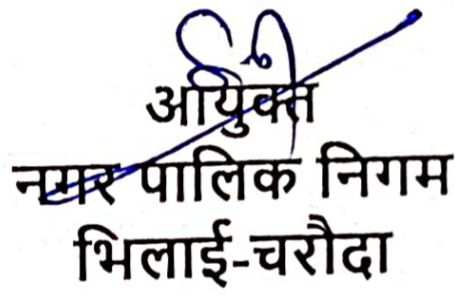 आयुक्त
नगर पालिक निगम
भिलाई-चरौदा